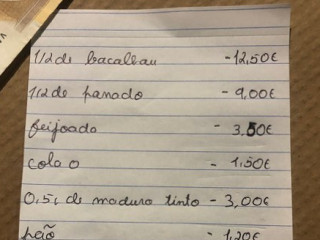 1/2 de bacalhau - 12,50€
1/2 de panado - 9,00€
feijoada - 3,50€
cola 0 - 1,50€
0,5l de maduro tinto - 3,00€
pão - 1,20€